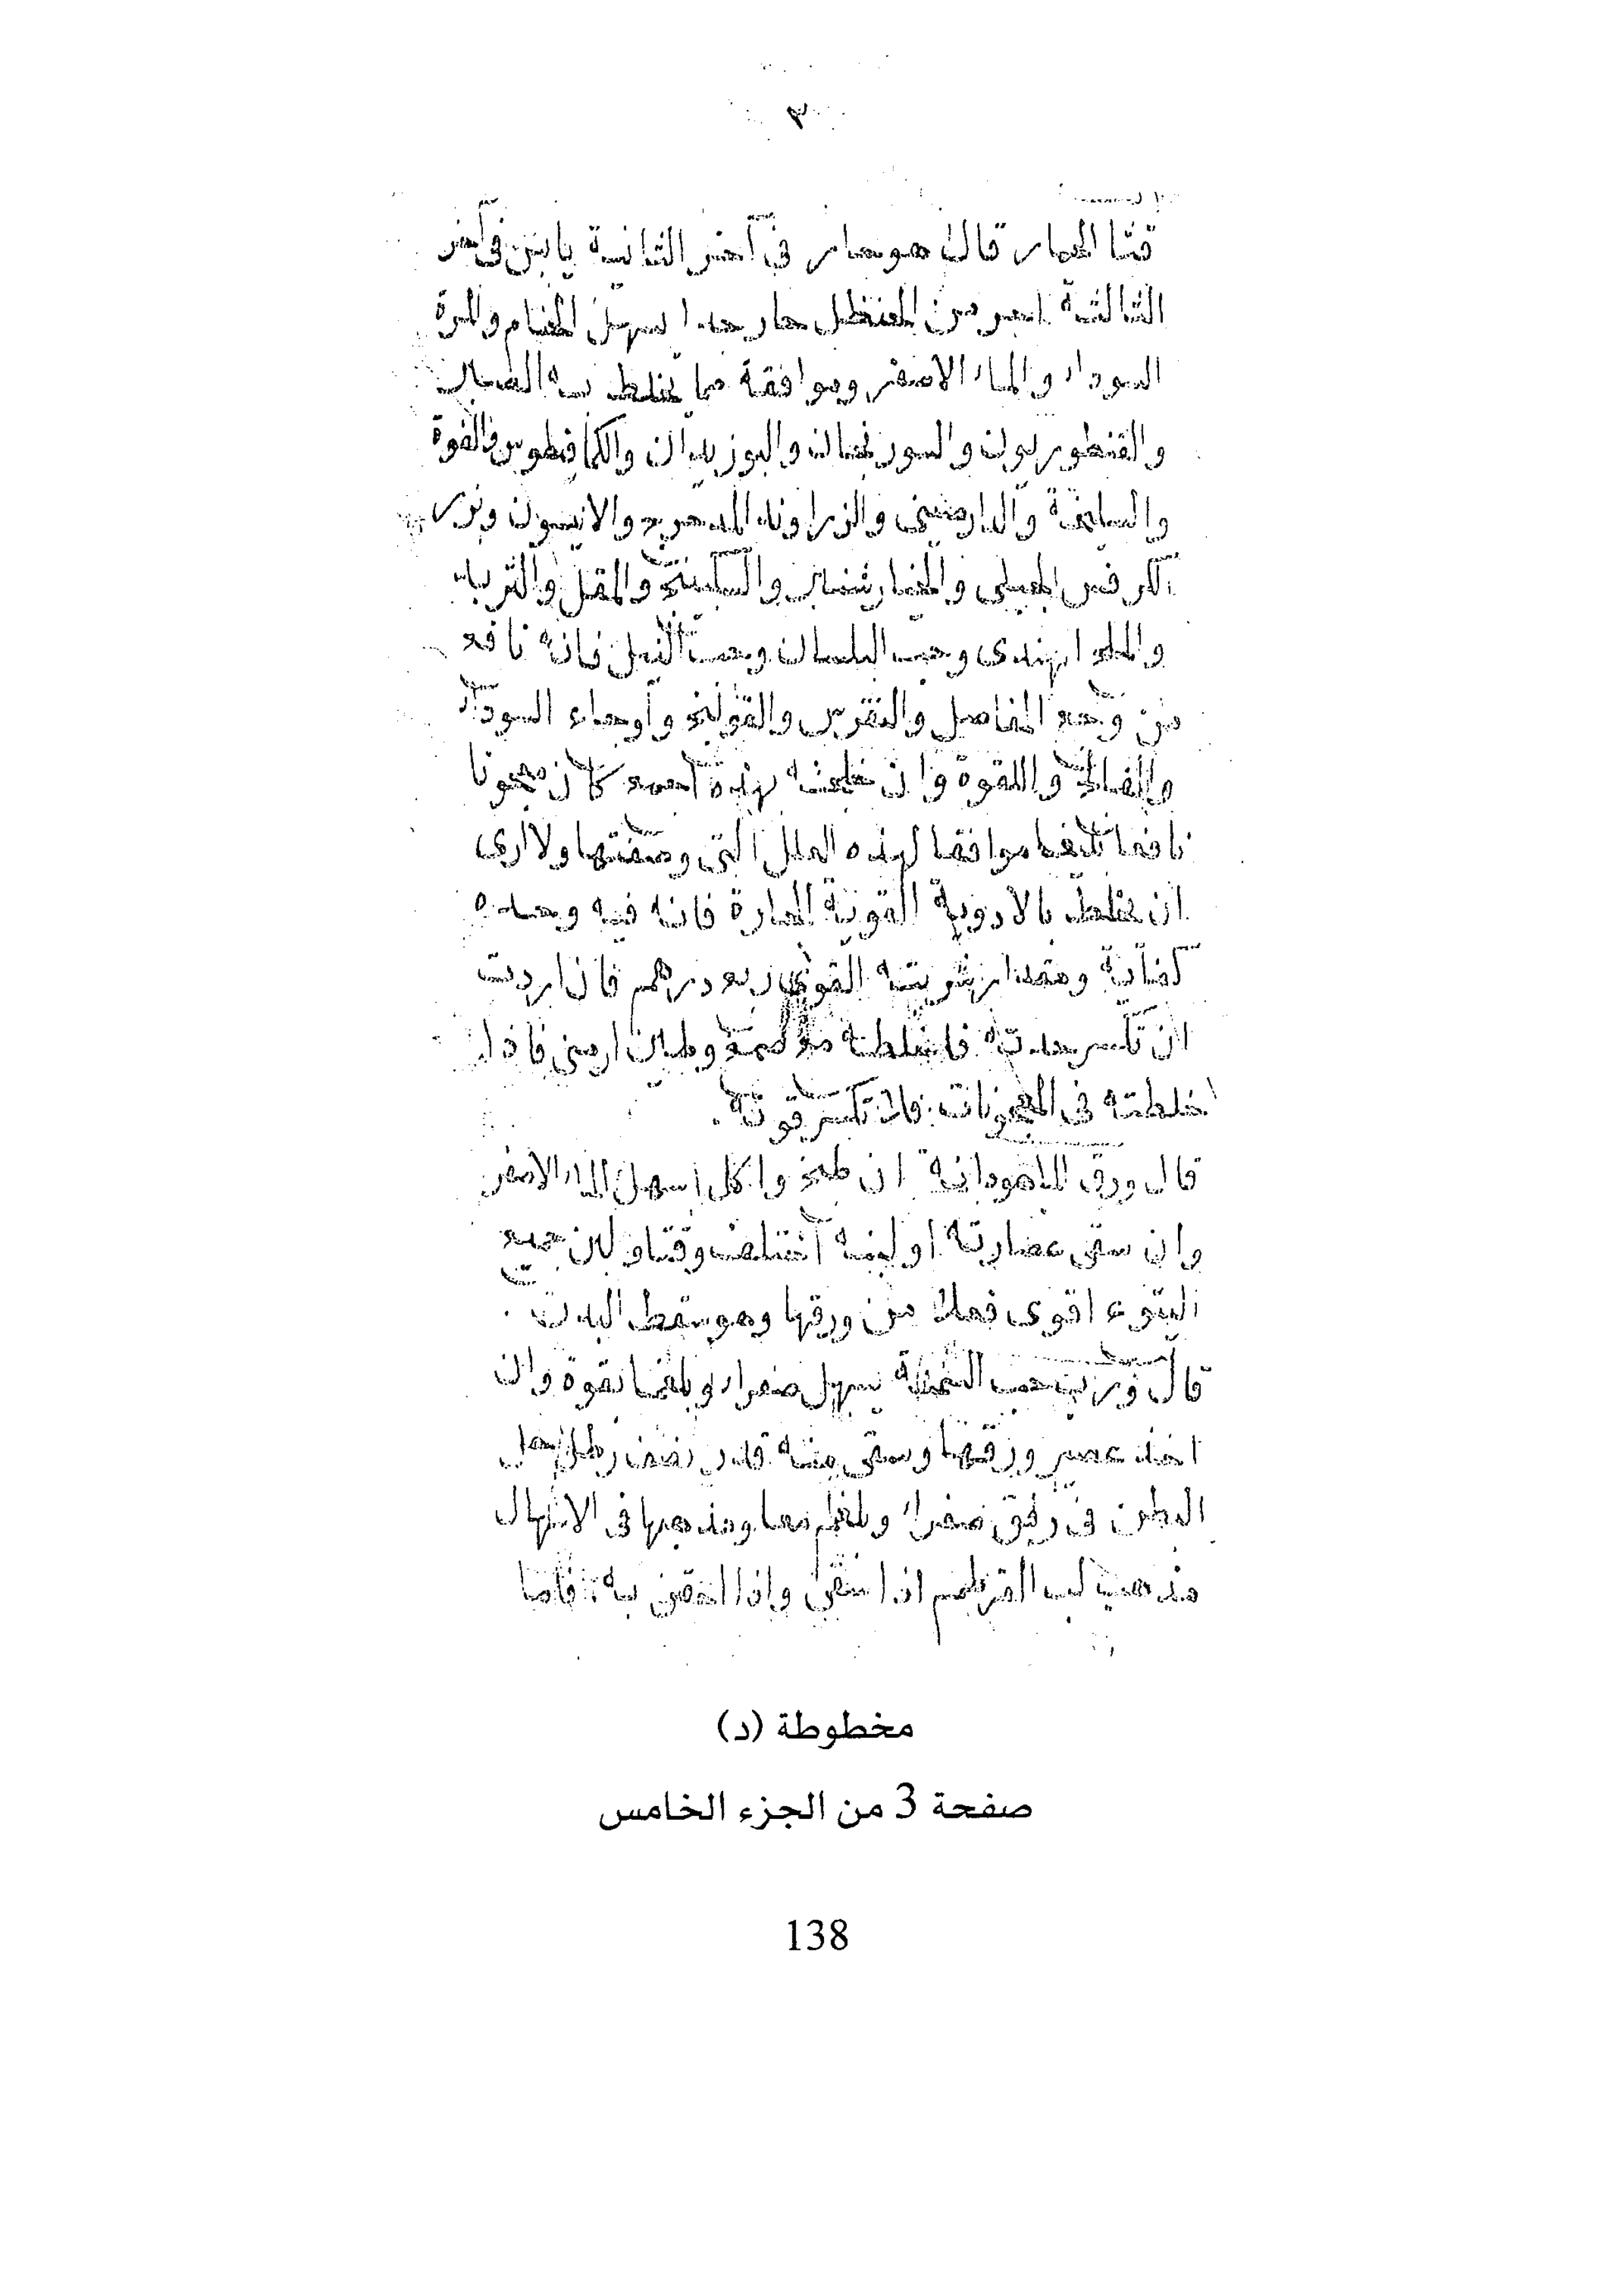 ٣
قثا الحمار قال هو حار في آخر الثانية يابس في آخر
الثالثة احر من الحنظل حار جدا يسهل الخام والمرة
السوداء والماء الاصفر وموافقة ما يخلط به الصبر
والقنطوريون والسورنجان والبوزيدان والكمافيطوس والفوة
والسليخة والدارصيني والزراوند المدحرج والانيسون وبزر
الكرفس الجبلي والخيارشنبر والسكبينج والمقل والتربد
والملح الهندي وحب البلسان وحب النيل فانه نافع
من وجع المفاصل والنقرس والقولنج وأوجاع السوداء
والفالج واللقوة وان خلطته بهذه اجمع كان معجونا
نافعا بليغا موافقا لهذه العلل التي وصفتها ولا ارى
ان يخلط بالادوية القوية الحارة فانه فيه وحده
كفاية ومقدار شربته القوى ربع درهم فان اردت
ان تكسر حدته فاخلطه مع صمغ وطين ارمني فاذا
خلطته في المعجونات فلا تكسر قوته.
قال ورق الماهودانة ان طبخ واكل اسهل الماء الاصفر
وان سقي عصارته او لبنه اختلف وقتا ولبن جميع
اليتوع اقوى فعلا من ورقها وهو يسقط البدن
قال بت حب السمنة يسهل صفراء وبلغما بقوة وان
اخذ عصير ورقها وسقي منه قدر نصف رطل اسهل
البطن في رفق صفراء وبلغم معا ومذهبها في الاسهال
مذهب لب القرطم اذا سقي واذا احتقن به فاما
مخطوطة (د)
صفحة 3 من الجزء الخامس
138